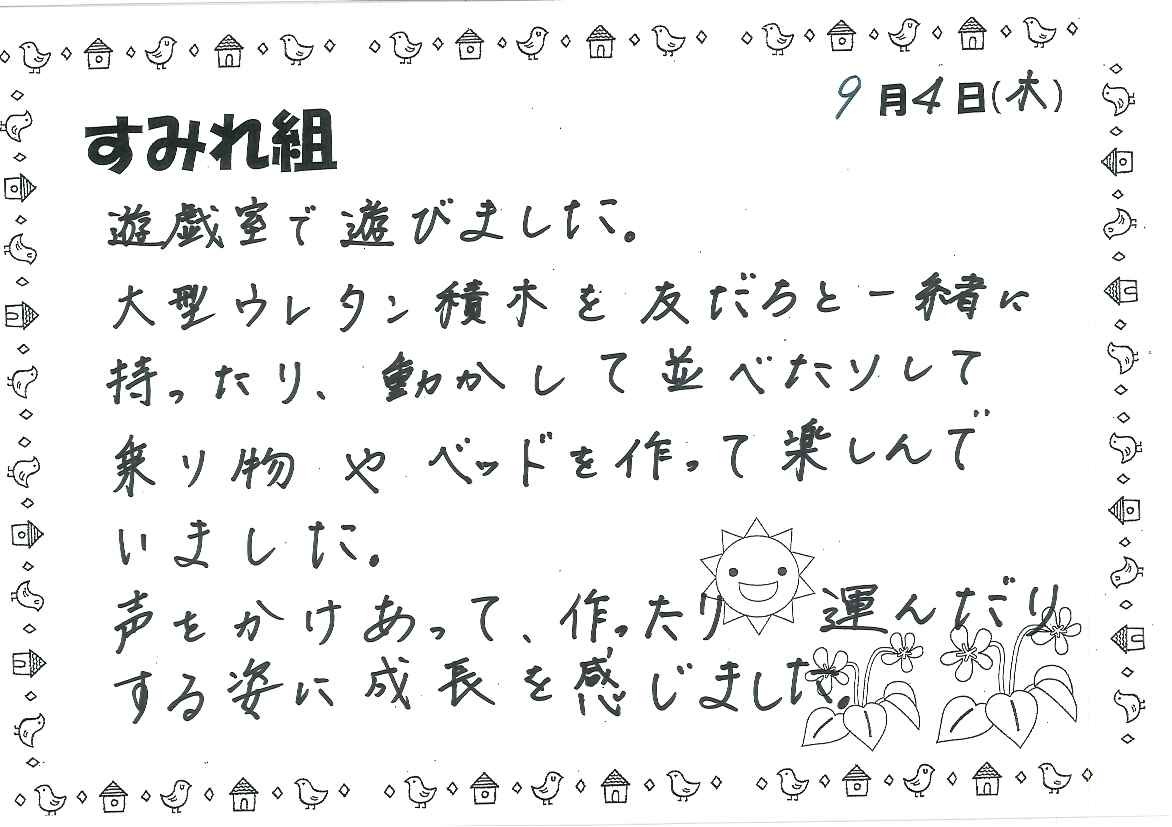 9月4日(水)
すみれ組
遊戯室で遊びました。
大型ウレタン積木を友だちと一緒に
持ったり、動かして並べたりして
乗り物やベッドを作って楽しんで
いました。
声をかけあって、作ったり運んだり
する姿に成長を感じました。